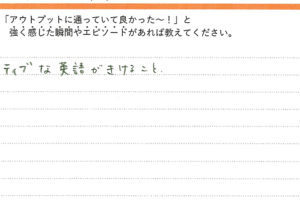 「アウトプットに通っていて良かった〜！」と
強く感じた瞬間やエピソードがあれば教えてください。
ティブな英語がきけること。